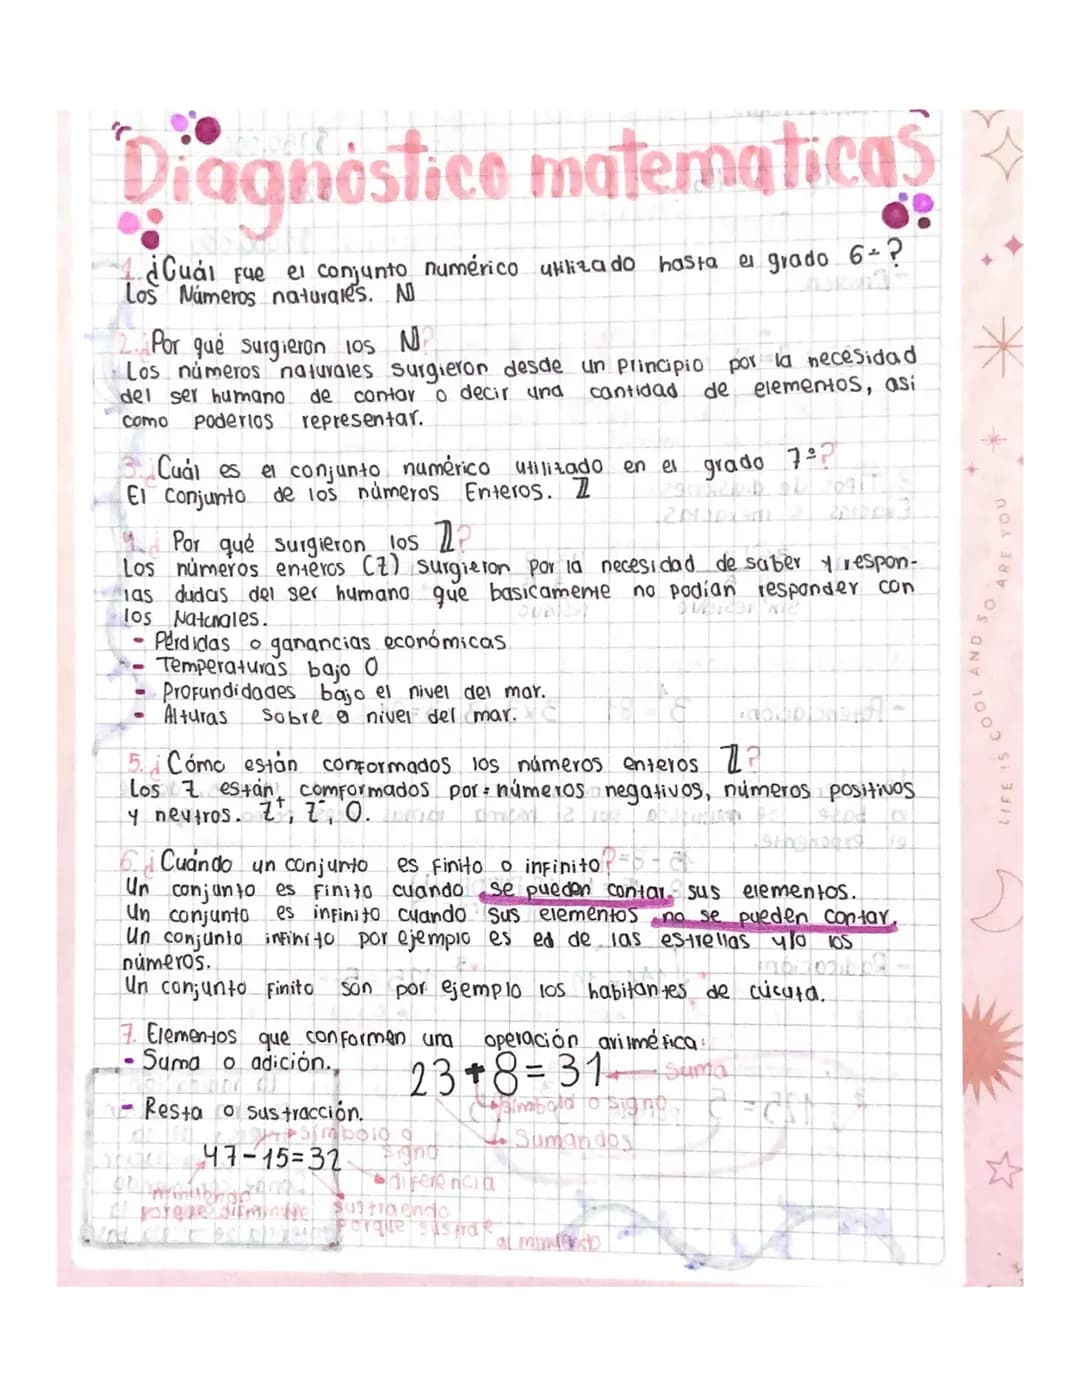 Diagnóstico matematicas
1. ¿Cuál fue el conjunto numérico utilizado hasta el grado 6-?
Los Números naturales. N
2. ¿Por qué surgieron los N?
Los números naturales surgieron desde un Principio por la necesidad
del ser humano de contar o decir una cantidad de elementos, asi
como poderlos representar.
3. ¿Cuál es el conjunto numérico utilizado en el grado 7º?
El conjunto de los números Enteros. Z
4. ¿Por qué surgieron los Z?
Los números enteros (Z) surgieron por la necesidad de saber y respon-
las dudas del ser humano que basicamente no podían responder con
los Naturales.
- Pérdidas o ganancias económicas
- Temperaturas bajo 0
- Profundidades bajo el nivel del mar.
- Alturas sobre e nivel del mar.
5. ¿Cómo están conformados los números enteros Z?
Los Z están comformados por: números negativos, números positivos
y neutros. Z⁺, Z⁻, 0.
6. ¿Cuándo un conjunto es finito o infinito?
Un conjunto es Finito cuando se pueden contar sus elementos.
Un conjunto es infinito cuando sus elementos no se pueden contar.
Un conjunto infinito por ejemplo es el de las estrellas y/o los
números.
Un conjunto Finito son por ejemplo los habitantes de cúcuta.
7. Elementos que conforman una operación aritmética:
- Suma o adición.
23+8=31 suma
símbolo o signo
Sumandos
- Resta o sustracción.
símbolo o
signo
47-15=32
diferencia
minuendo
porque disminuye
sustraendo
porque sustrae
al
LIFE IS COOL AND SO ARE YOU